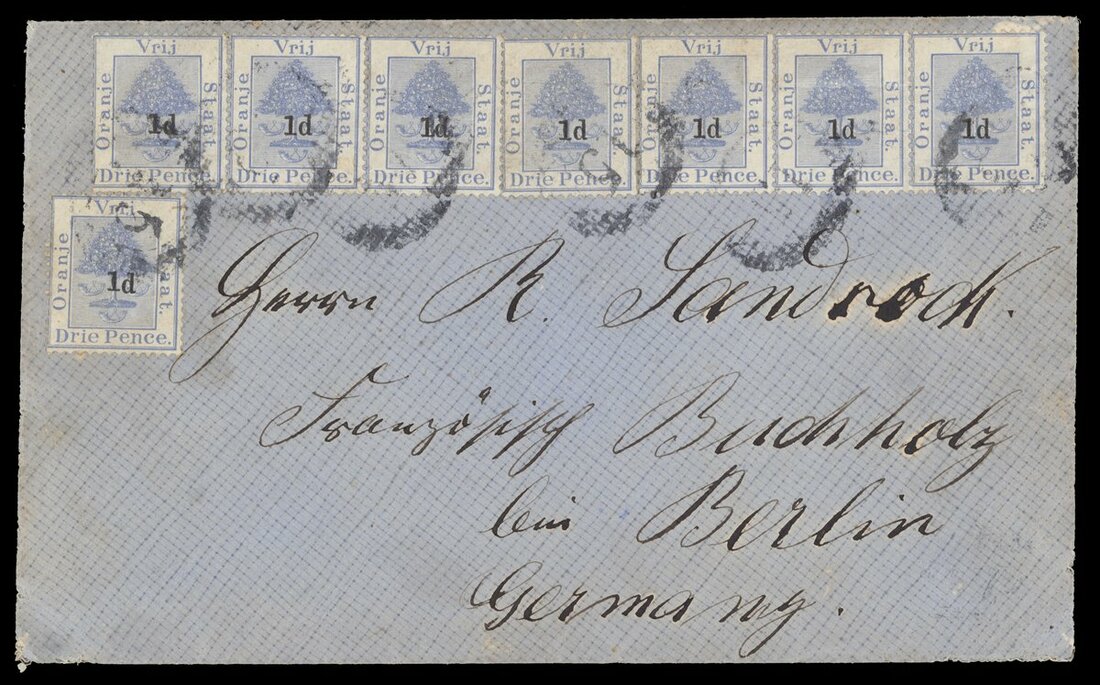 Vrij Vrij Vrij Vrij Vrij Vrij Vrij
Oranje 1d Staat. Oranje 1d Staat. Oranje 1d Staat. Oranje 1d Staat. Oranje 1d Staat. Oranje 1d Staat. Oranje 1d Staat.
Drie Pence. Drie Pence. Drie Pence. Drie Pence. Drie Pence. Drie Pence. Drie Pence.
Vrij
Oranje 1d Staat.
Drie Pence.
Herrn R. Sandrock.
Französisch Buchholz
bei Berlin
Germany.